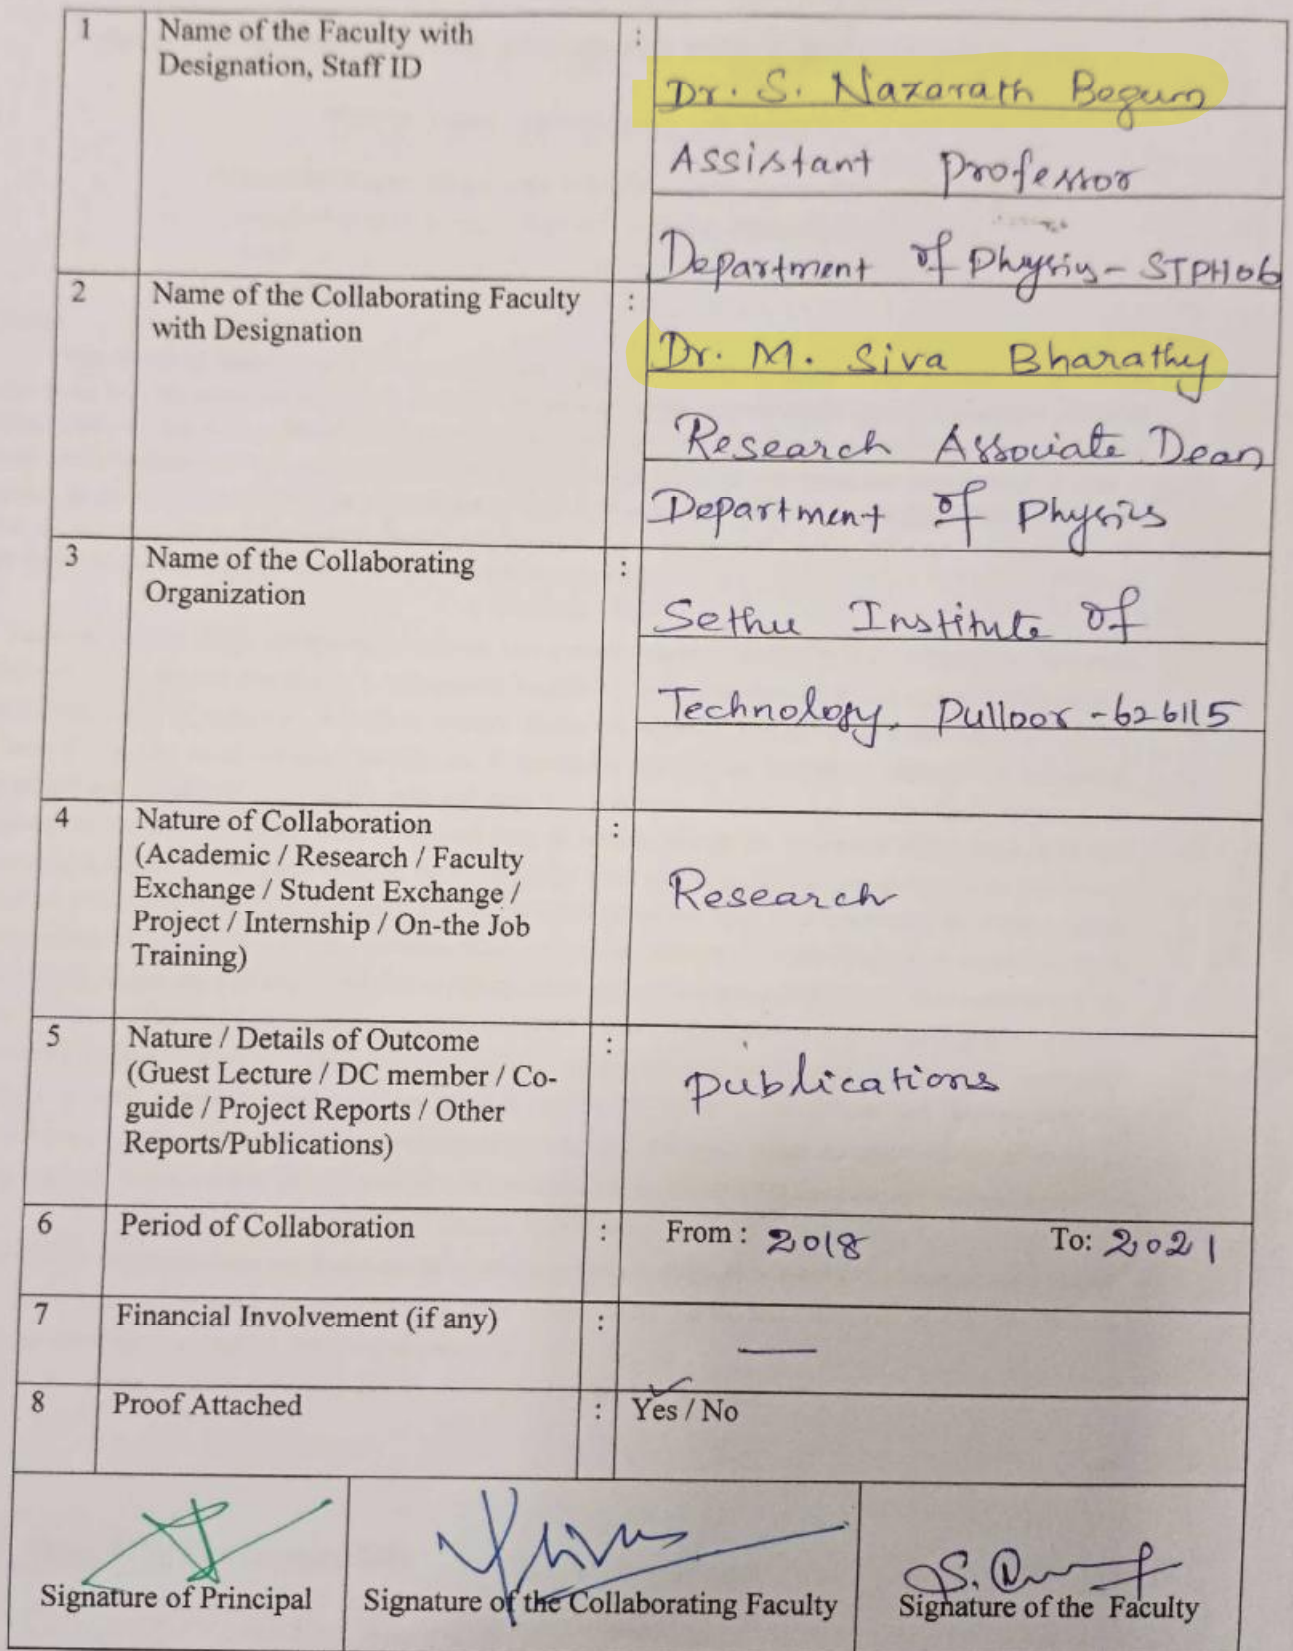 1 Name of the Faculty with : 
Designation, Staff ID
Dr. S. Nazarath Begum
Assistant professor
Department of Physics - STPH06
2 Name of the Collaborating Faculty :
with Designation
Dr. M. Siva Bharathy
Research Associate Dean
Department of Physics
3 Name of the Collaborating :
Organization
Sethu Institute of
Technology, Pulloor - 626115
4 Nature of Collaboration :
(Academic / Research / Faculty
Exchange / Student Exchange /
Project / Internship / On-the Job
Training)
Research
5 Nature / Details of Outcome :
(Guest Lecture / DC member / Co-
guide / Project Reports / Other
Reports/Publications)
publications
6 Period of Collaboration : From : 2018 To: 2021
7 Financial Involvement (if any) : —
8 Proof Attached : Yes / No
Signature of Principal Signature of the Collaborating Faculty Signature of the Faculty